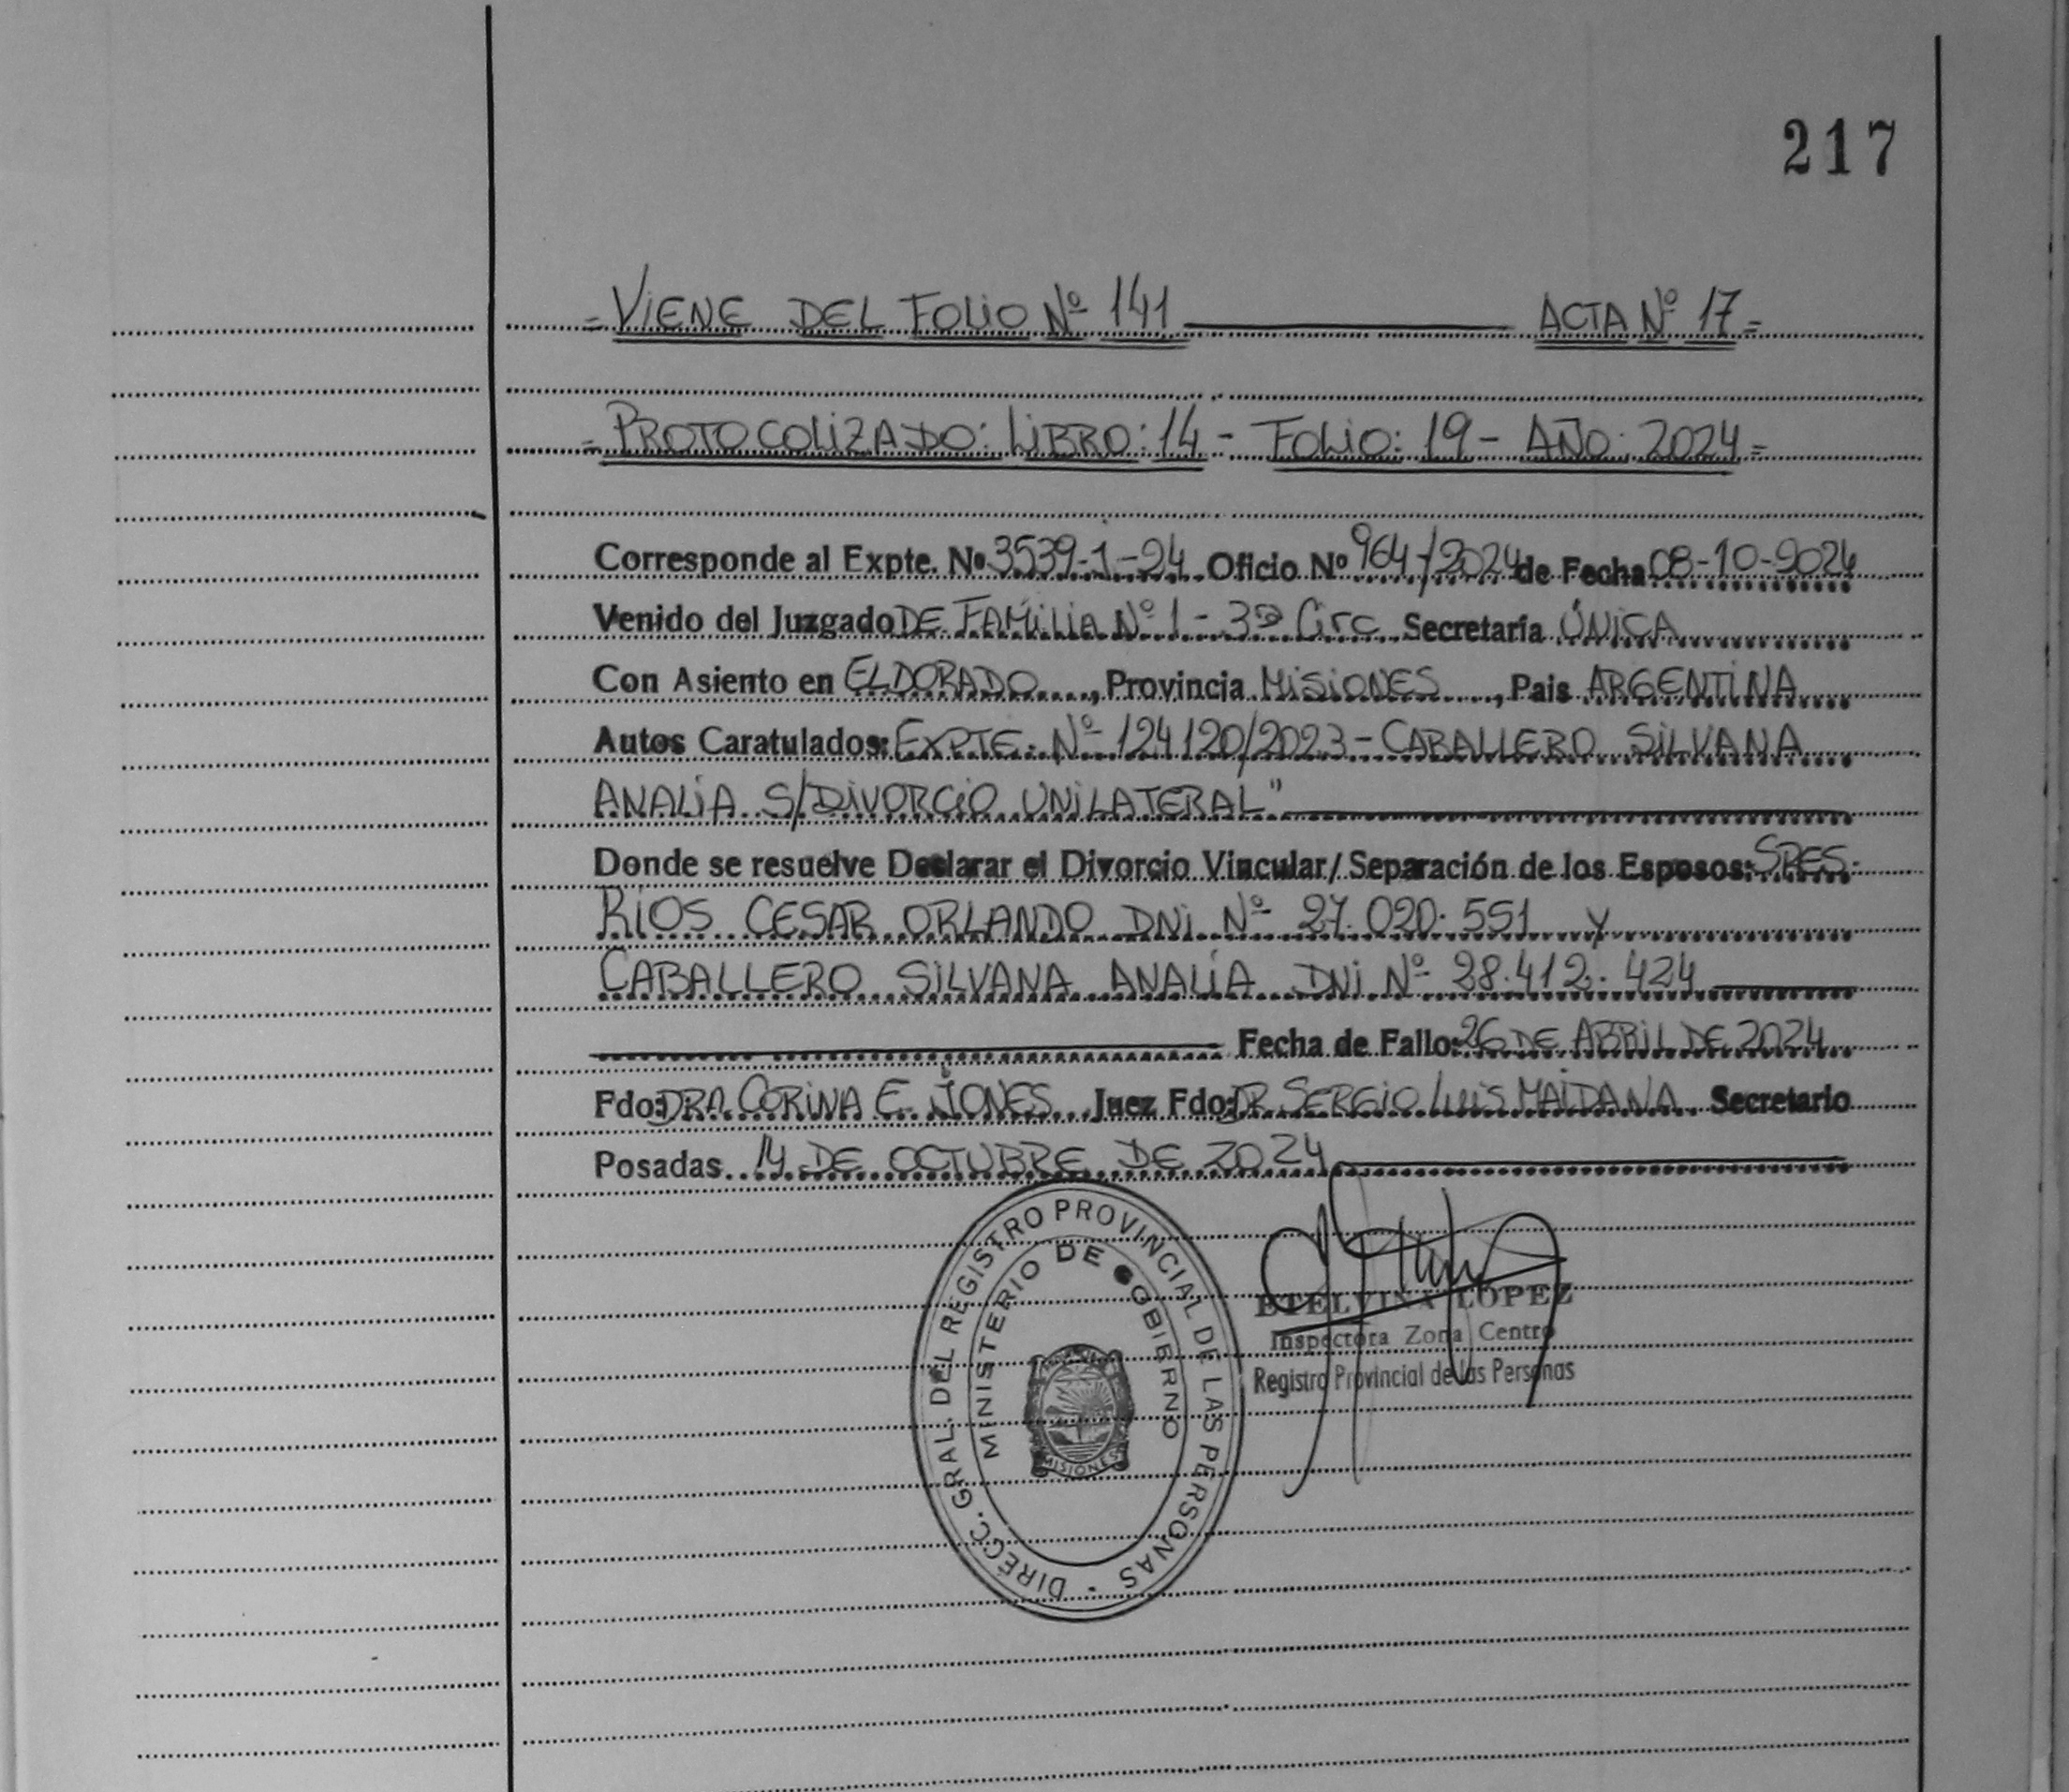 217
= VIENE DEL FOLIO Nº 141 ACTA Nº 17 =
= PROTOCOLIZADO: LIBRO: 14 - FOLIO: 19 - AÑO: 2024 =
Corresponde al Expte. Nº 3539-1-24 Oficio Nº 964/2024 de Fecha 08-10-2024
Venido del Juzgado DE FAMILIA Nº 1 - 3ra Circ. Secretaría ÚNICA
Con Asiento en ELDORADO, Provincia MISIONES, Pais ARGENTINA
Autos Caratulados: EXPTE. Nº 124120/2023 - CABALLERO SILVANA
ANALÍA S/DIVORCIO UNILATERAL"
Donde se resuelve Declarar el Divorcio Vincular/Separación de los Esposos: SRES.
RIOS CESAR ORLANDO DNI Nº 27.020.551 y
CABALLERO SILVANA ANALÍA DNI Nº 28.412.424
Fecha de Fallo: 26 DE ABRIL DE 2024
Fdo: DRA. CORINA E. JONES Juez Fdo: DR. SERGIO LUIS MAIDANA Secretario
Posadas 14 DE OCTUBRE DE 2024
DIRECC. GRAL. DEL REGISTRO PROVINCIAL DE LAS PERSONAS -
MINISTERIO DE GOBIERNO
MISIONES
ETELVINA LOPEZ
Inspectora Zona Centro
Registro Provincial de las Personas